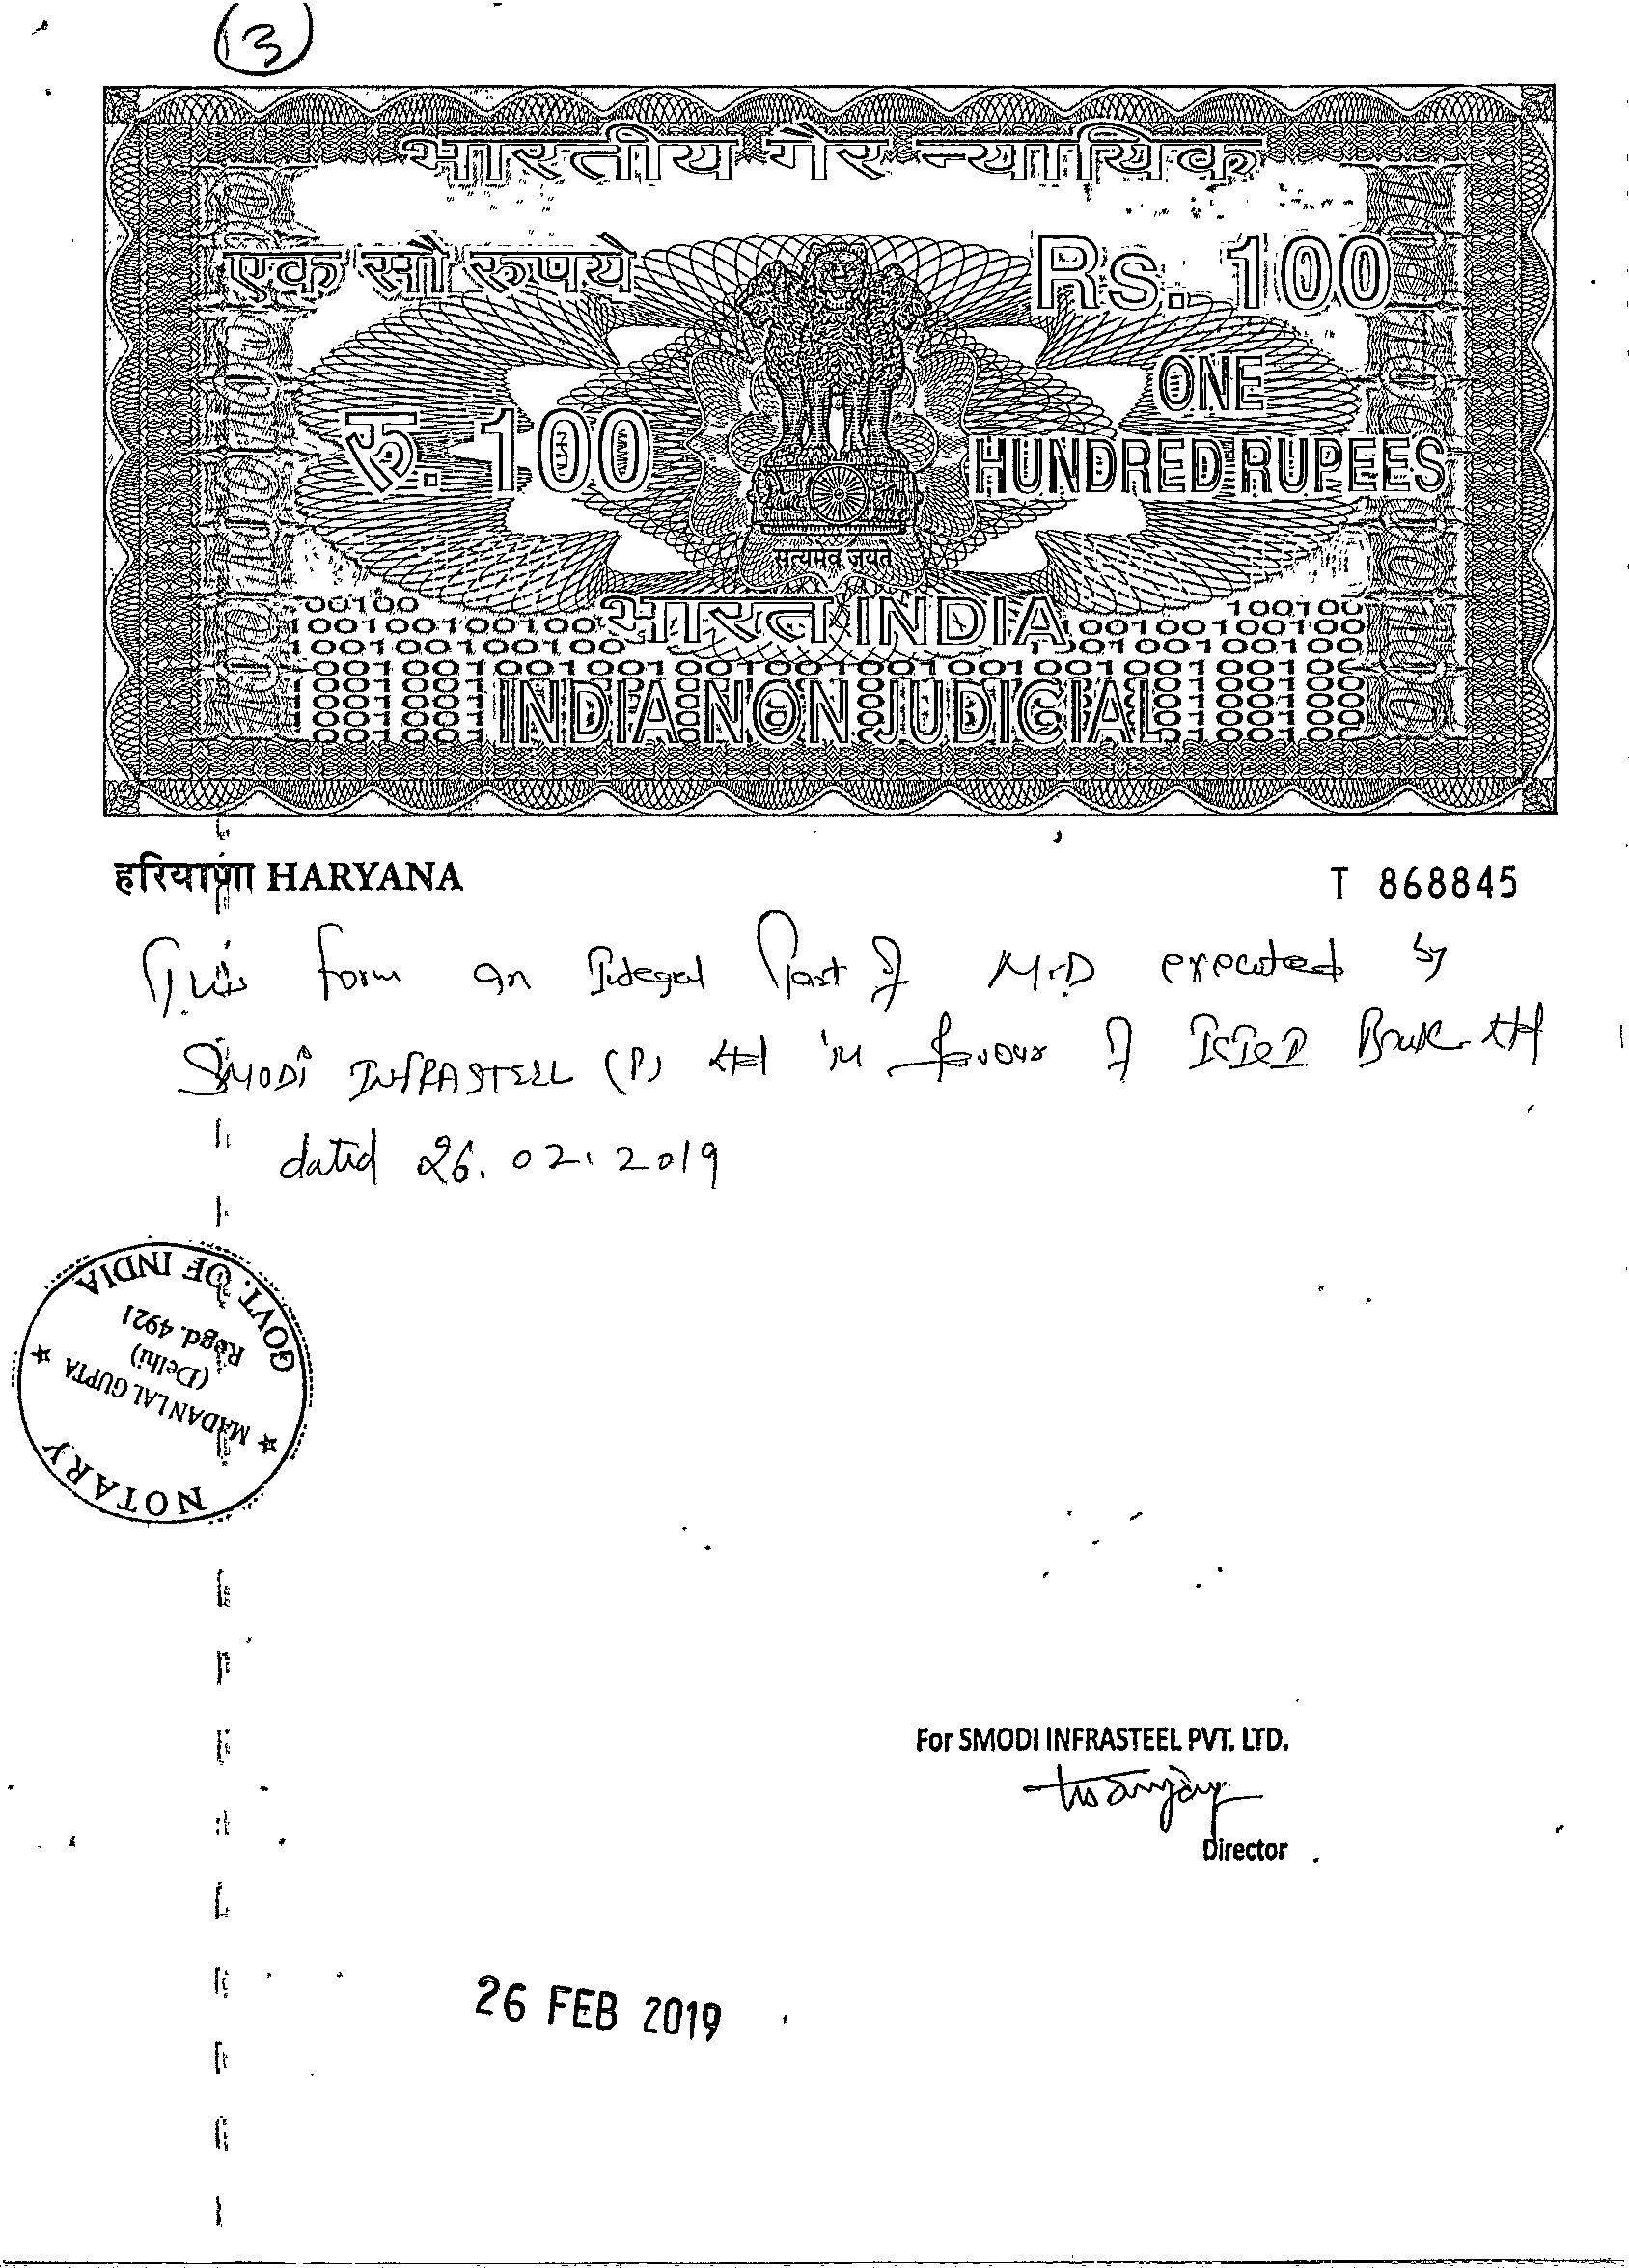 (3)
भारतीय गैर न्यायिक
एक सौ रुपये Rs. 100
रु. 100 ONE
HUNDRED RUPEES
सत्यमेव जयते
भारत INDIA
INDIA NON JUDICIAL
हरियाणा HARYANA T 868845
This form an Integral Part of M.D executed by
SMODI INFRASTEEL (P) Ltd in favour of ICICI Bank Ltd
dated 26.02.2019
GOVT. OF INDIA
Regd. 4921
(Delhi)
MADAN LAL GUPTA
NOTARY
For SMODI INFRASTEEL PVT. LTD.
Director
26 FEB 2019